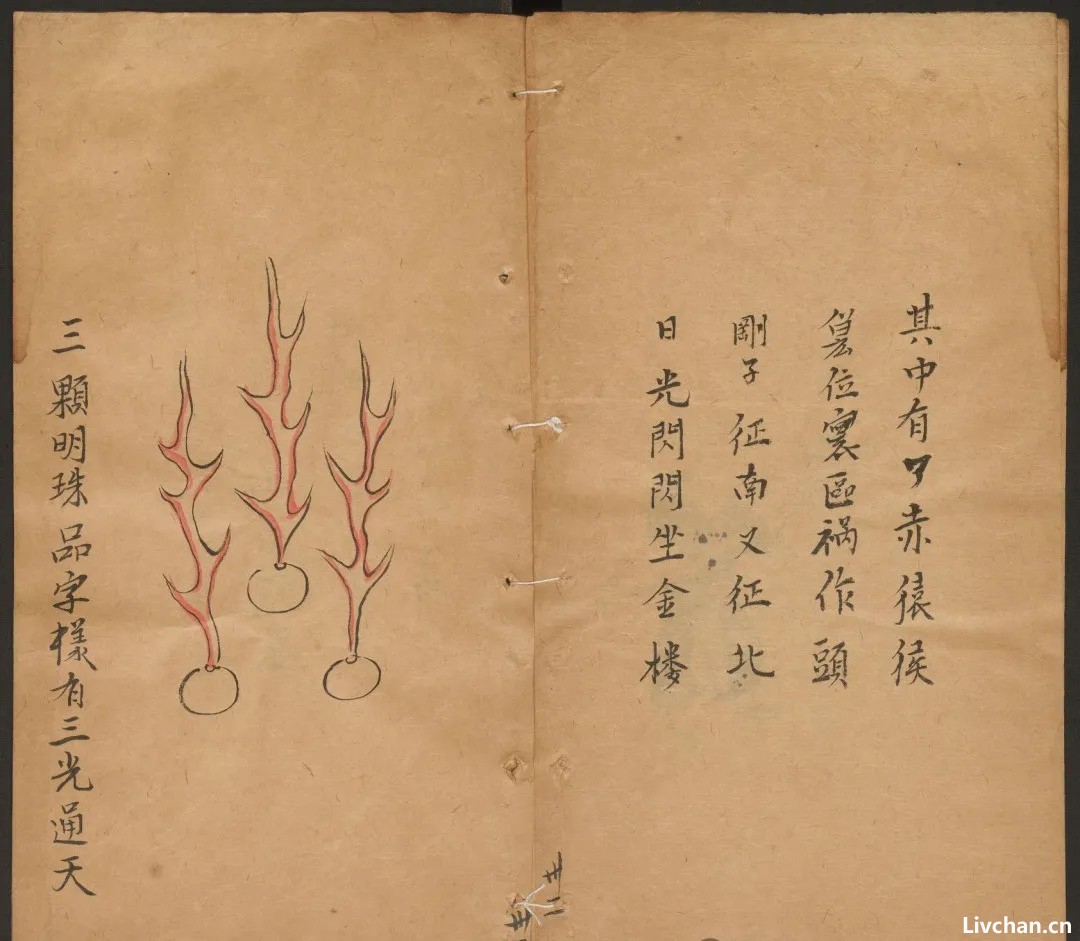 其中有卩赤猿猴
位寰區禍作頭
剛子征南又征北
日光閃閃坐金楼
三顆明珠品字樣有三光通天
卅二
卅
Livchan.cn